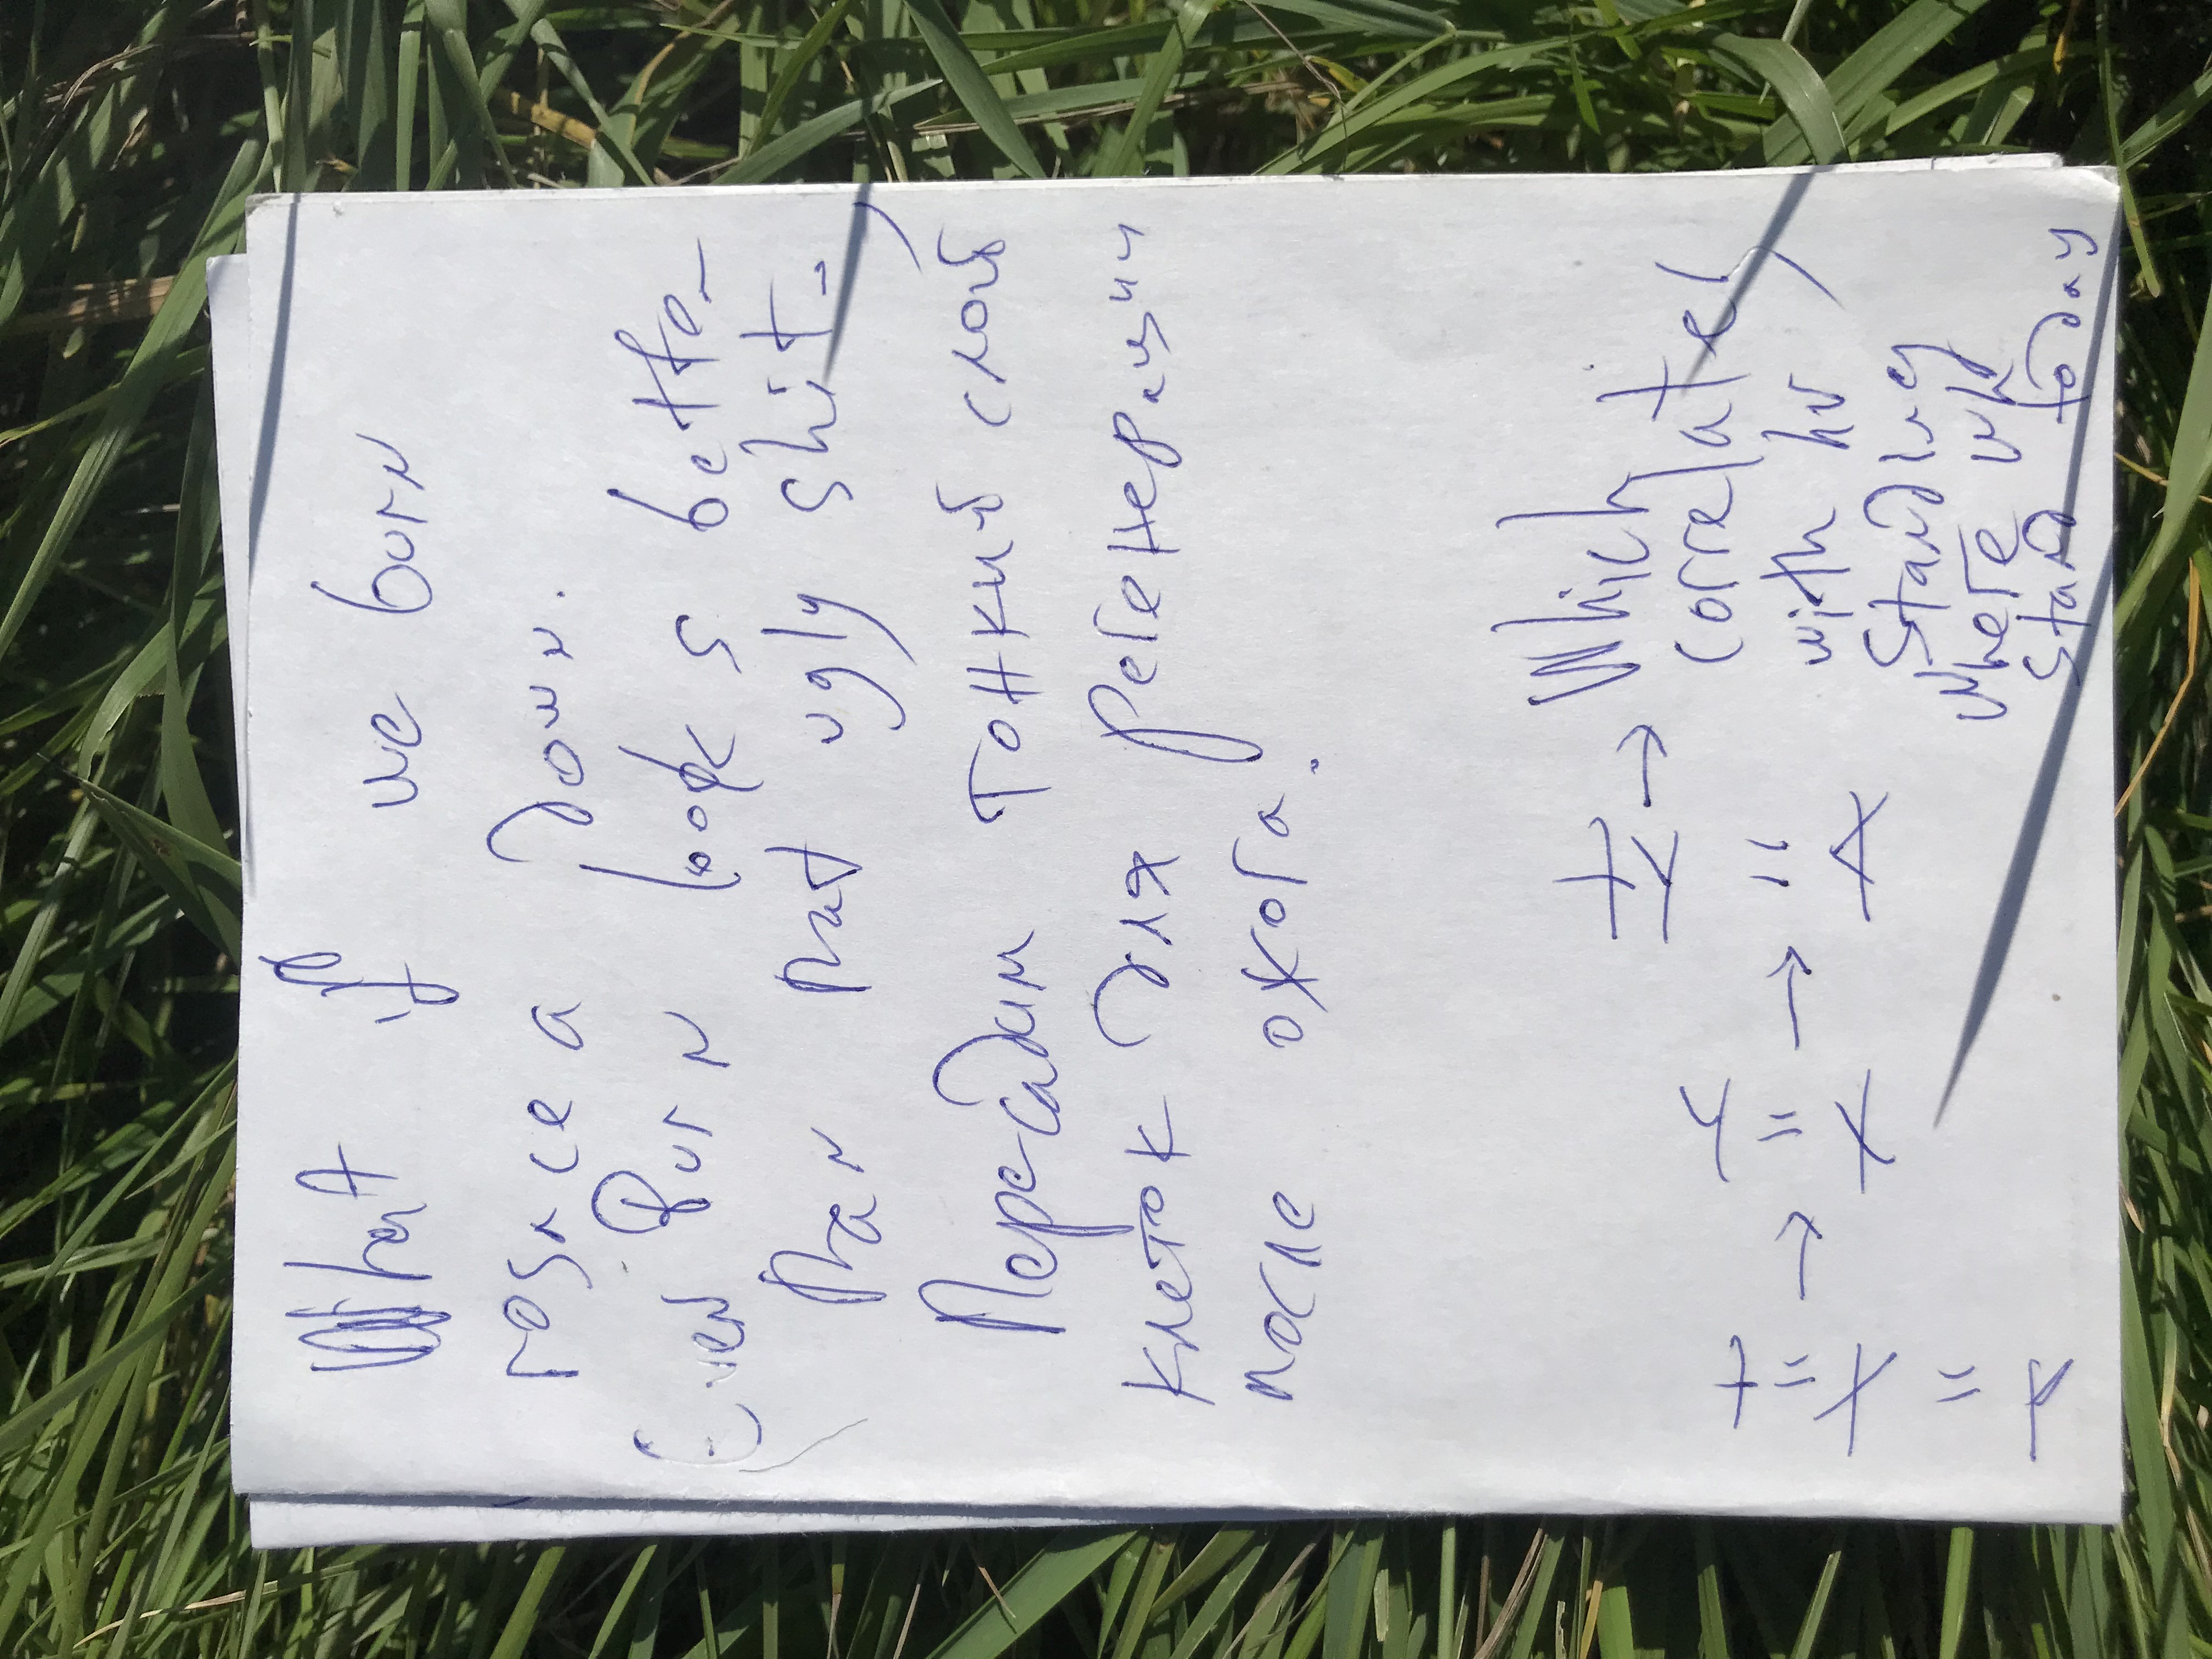 What if we burn
rosacea down.
Even Burn looks better
than that ugly shit.
Пересадим тонкий слой
клеток для регенерации
после ожога.
Which
correlates
with
standing
where
stand today